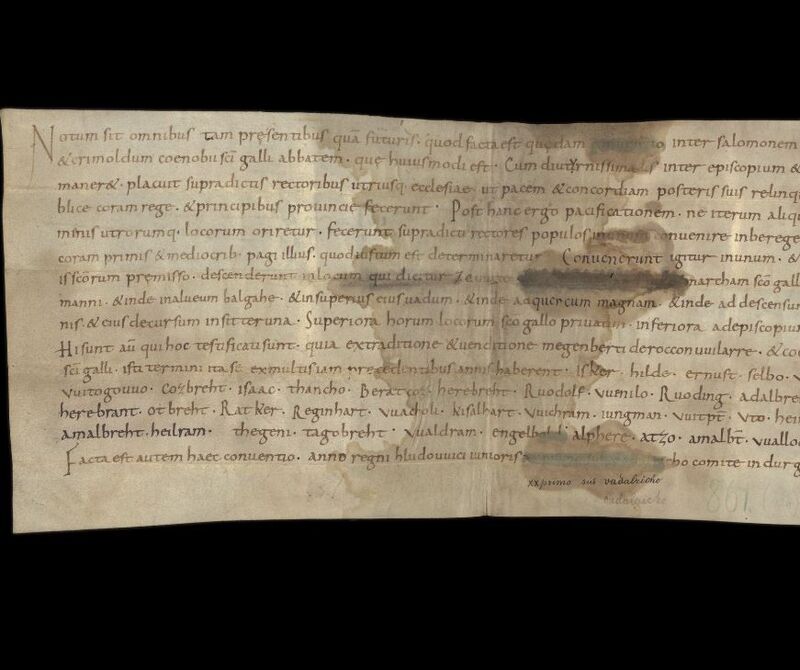 Notum sit omnibus tam presentibus quā futuris. quod facta est quedam inter salomonem
& crimoldum coenobii sc̄i galli abbatem. que huiusmodi est. Cum inter episcopium &
maner&. placuit supradictis rectoribus utriusq. ecclesiae ut pacem & concordiam posteris suis relinq
blice coram rege. & principibus provincie fecerunt. Post hanc ergo pacificationem. ne iterum aliq
minis utrorumq. locorum oriretur. fecerunt supradicti rectores populos convenire in berege
coram primis & mediocrib. pagi illius. quod iustum est determinaretur. Convenerunt igitur in unum. &
is sc̄orum premisso. descenderunt in locum qui dicitur martham sc̄o gall
manni. & inde in alueum balgahe. & insuperius eius uadum. & inde ad quercum magnam. & inde ad descensur
nis & eius decursum insitteruna. Superiora horum locorum sc̄o gallo privatim. inferiora ad episcopiu
Hi sunt aū qui hoc testificati sunt. quia ex traditione & venditione megenberti de roccon uuilarre. & co
sc̄i galli. isti termini ita se ex multis iam precedentibus annis haberent. Isker. hilde. ernust. selbo.
vuitogouuo. Cozbreht. isaac. thancho. herebreht. Ruodolf. vuenilo. Ruoding. adalbre
herebrant. otbreht. Ratker. Reginhart. vuacholi. kisalhart. vuichram. iungman. vuitpt. vto. hei
amalbreht. heilram. thegeni. tagobreht. vualdram. alphere. atzo. amalbt. vuallo
Facta est autem haec conventio. anno regni hludouuici iunioris cho comite in durg
xxprimo sub vadalricho
861